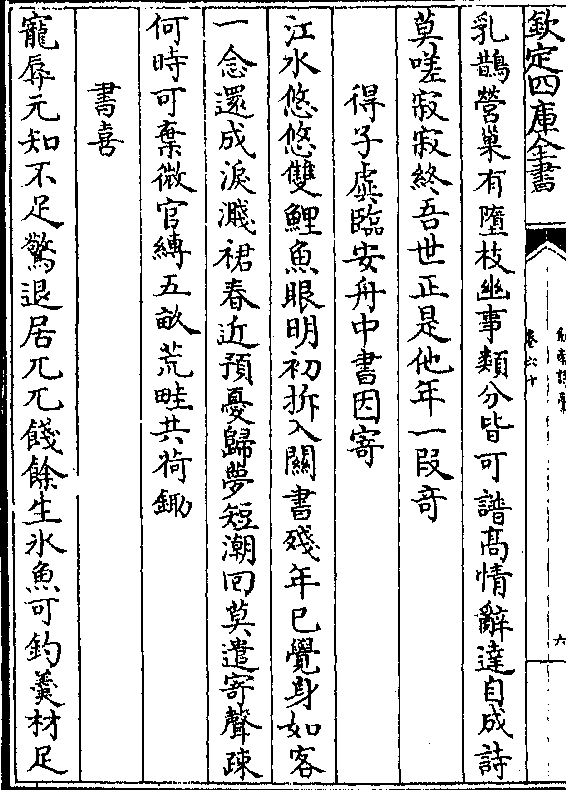 欽定四庫全書
卷六十
六
乳鵲營巢有墮枝幽事類分皆可譜髙情辭達自成詩
莫嗟寂寂終吾世正是他年一段竒
得子虡臨安舟中書因寄
江水悠悠雙鯉魚眼明初拆入闗書殘年已覺身如客
一念還成淚濺裙春近預憂歸夢短潮回莫遣寄聲疎
何時可棄微官縛五畝荒畦共荷鋤
書喜
寵辱元知不足驚退居兀兀餞餘生氷魚可釣羮材足